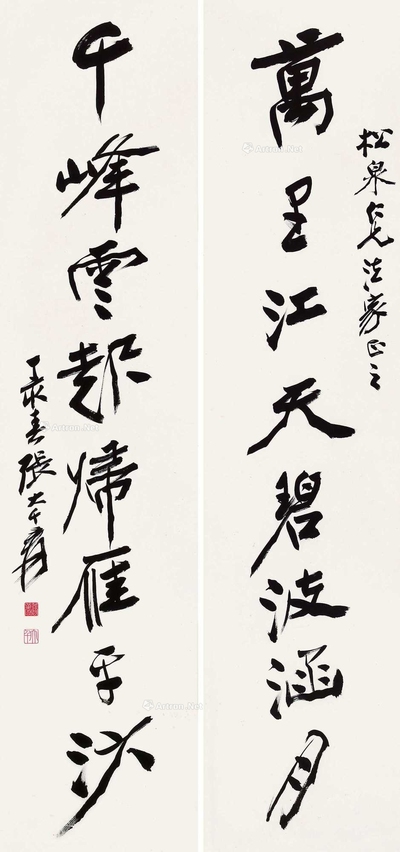 松泉仁兄法家正之
萬里江天碧波涵月
千峰雲起歸雁平沙
丁亥春張大千爰